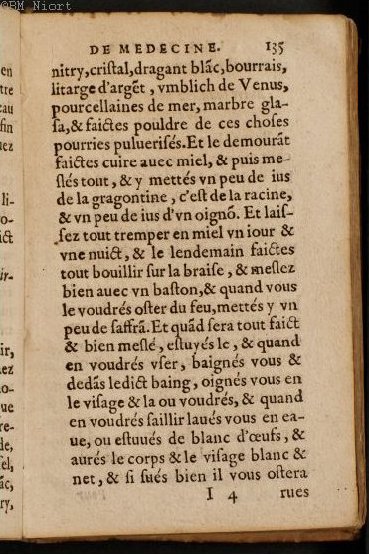 ©BM Niort
DE MEDECINE. 135
nitry, cristal, dragant blāc, bourrais,
litarge d'argēt, vmblich de Venus,
pourcellaines de mer, marbre gla-
sa, & faictes pouldre de ces choses
pourries puluerisés. Et le demourāt
faictes cuire auec miel, & puis me-
slés tout, & y mettés vn peu de ius
de la gragontine, c'est de la racine,
& vn peu de ius d'vn oignō. Et lais-
sez tout tremper en miel vn iour &
vne nuict, & le lendemain faictes
tout bouillir sur la braise, & meslez
bien auec vn baston, & quand vous
le voudrés oster du feu, mettés y vn
peu de saffrā. Et quād sera tout faict
& bien meslé, estuyés le, & quand
en voudrés vser, baignés vous &
dedās ledict baing, oignés vous en
le visage & la ou voudrés, & quand
en voudrés saillir laués vous en ea-
ue, ou estuués de blanc d'œufs, &
aurés le corps & le visage blanc &
net, & si sués bien il vous ostera
I 4 rues
en
tre
eau
fin
uez
li-
o-
ict
ir-
ir,
ez
no-
que
re-
de,
sel,
āc,
ry,